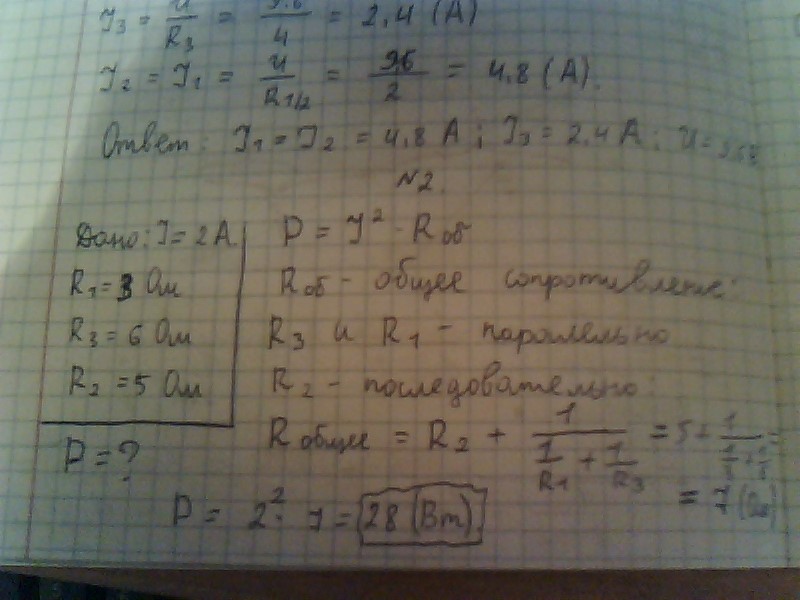 I₃ = U/R₃ = 9.6/4 = 2,4 (A)
I₂ = I₁ = U/R₁,₂ = 9,6/2 = 4,8 (A).
Ответ: I₁ = I₂ = 4,8 A; I₃ = 2,4 A; U =
№2.
Дано: I = 2 A
R₁ = 3 Ом
R₃ = 6 Ом
R₂ = 5 Ом
P = ?
P = I² · Rоб
Rоб - общее сопротивление:
R₃ и R₁ - паралельно
R₂ - последовательно:
Rобщее = R₂ + 1/(1/R₁ + 1/R₃) = 5 +
= 7 (Ом)
P = 2² · 7 = 28 (Вт)